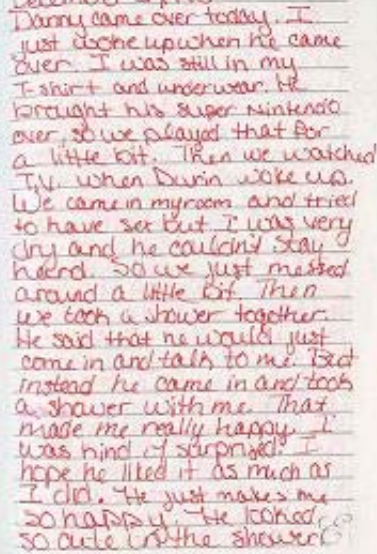 Danny came over today. I
just woke up when he came
over. I was still in my
T-shirt and underwear. He
brought his super Nintendo
over, so we played that for
a little bit. Then we watched
T.V. when Durin woke up.
We came in my room and tried
to have sex but I was very
dry and he couldn't stay
heard. So we just messed
around a little bit. Then
we took a shower together.
He said that he would just
come in and talk to me. But
instead he came in and took
a shower with me. That
made me really happy. I
was kind of surprised. I
hope he liked it as much as
I did. He just makes me
so happy. He looked
so cute in the shower